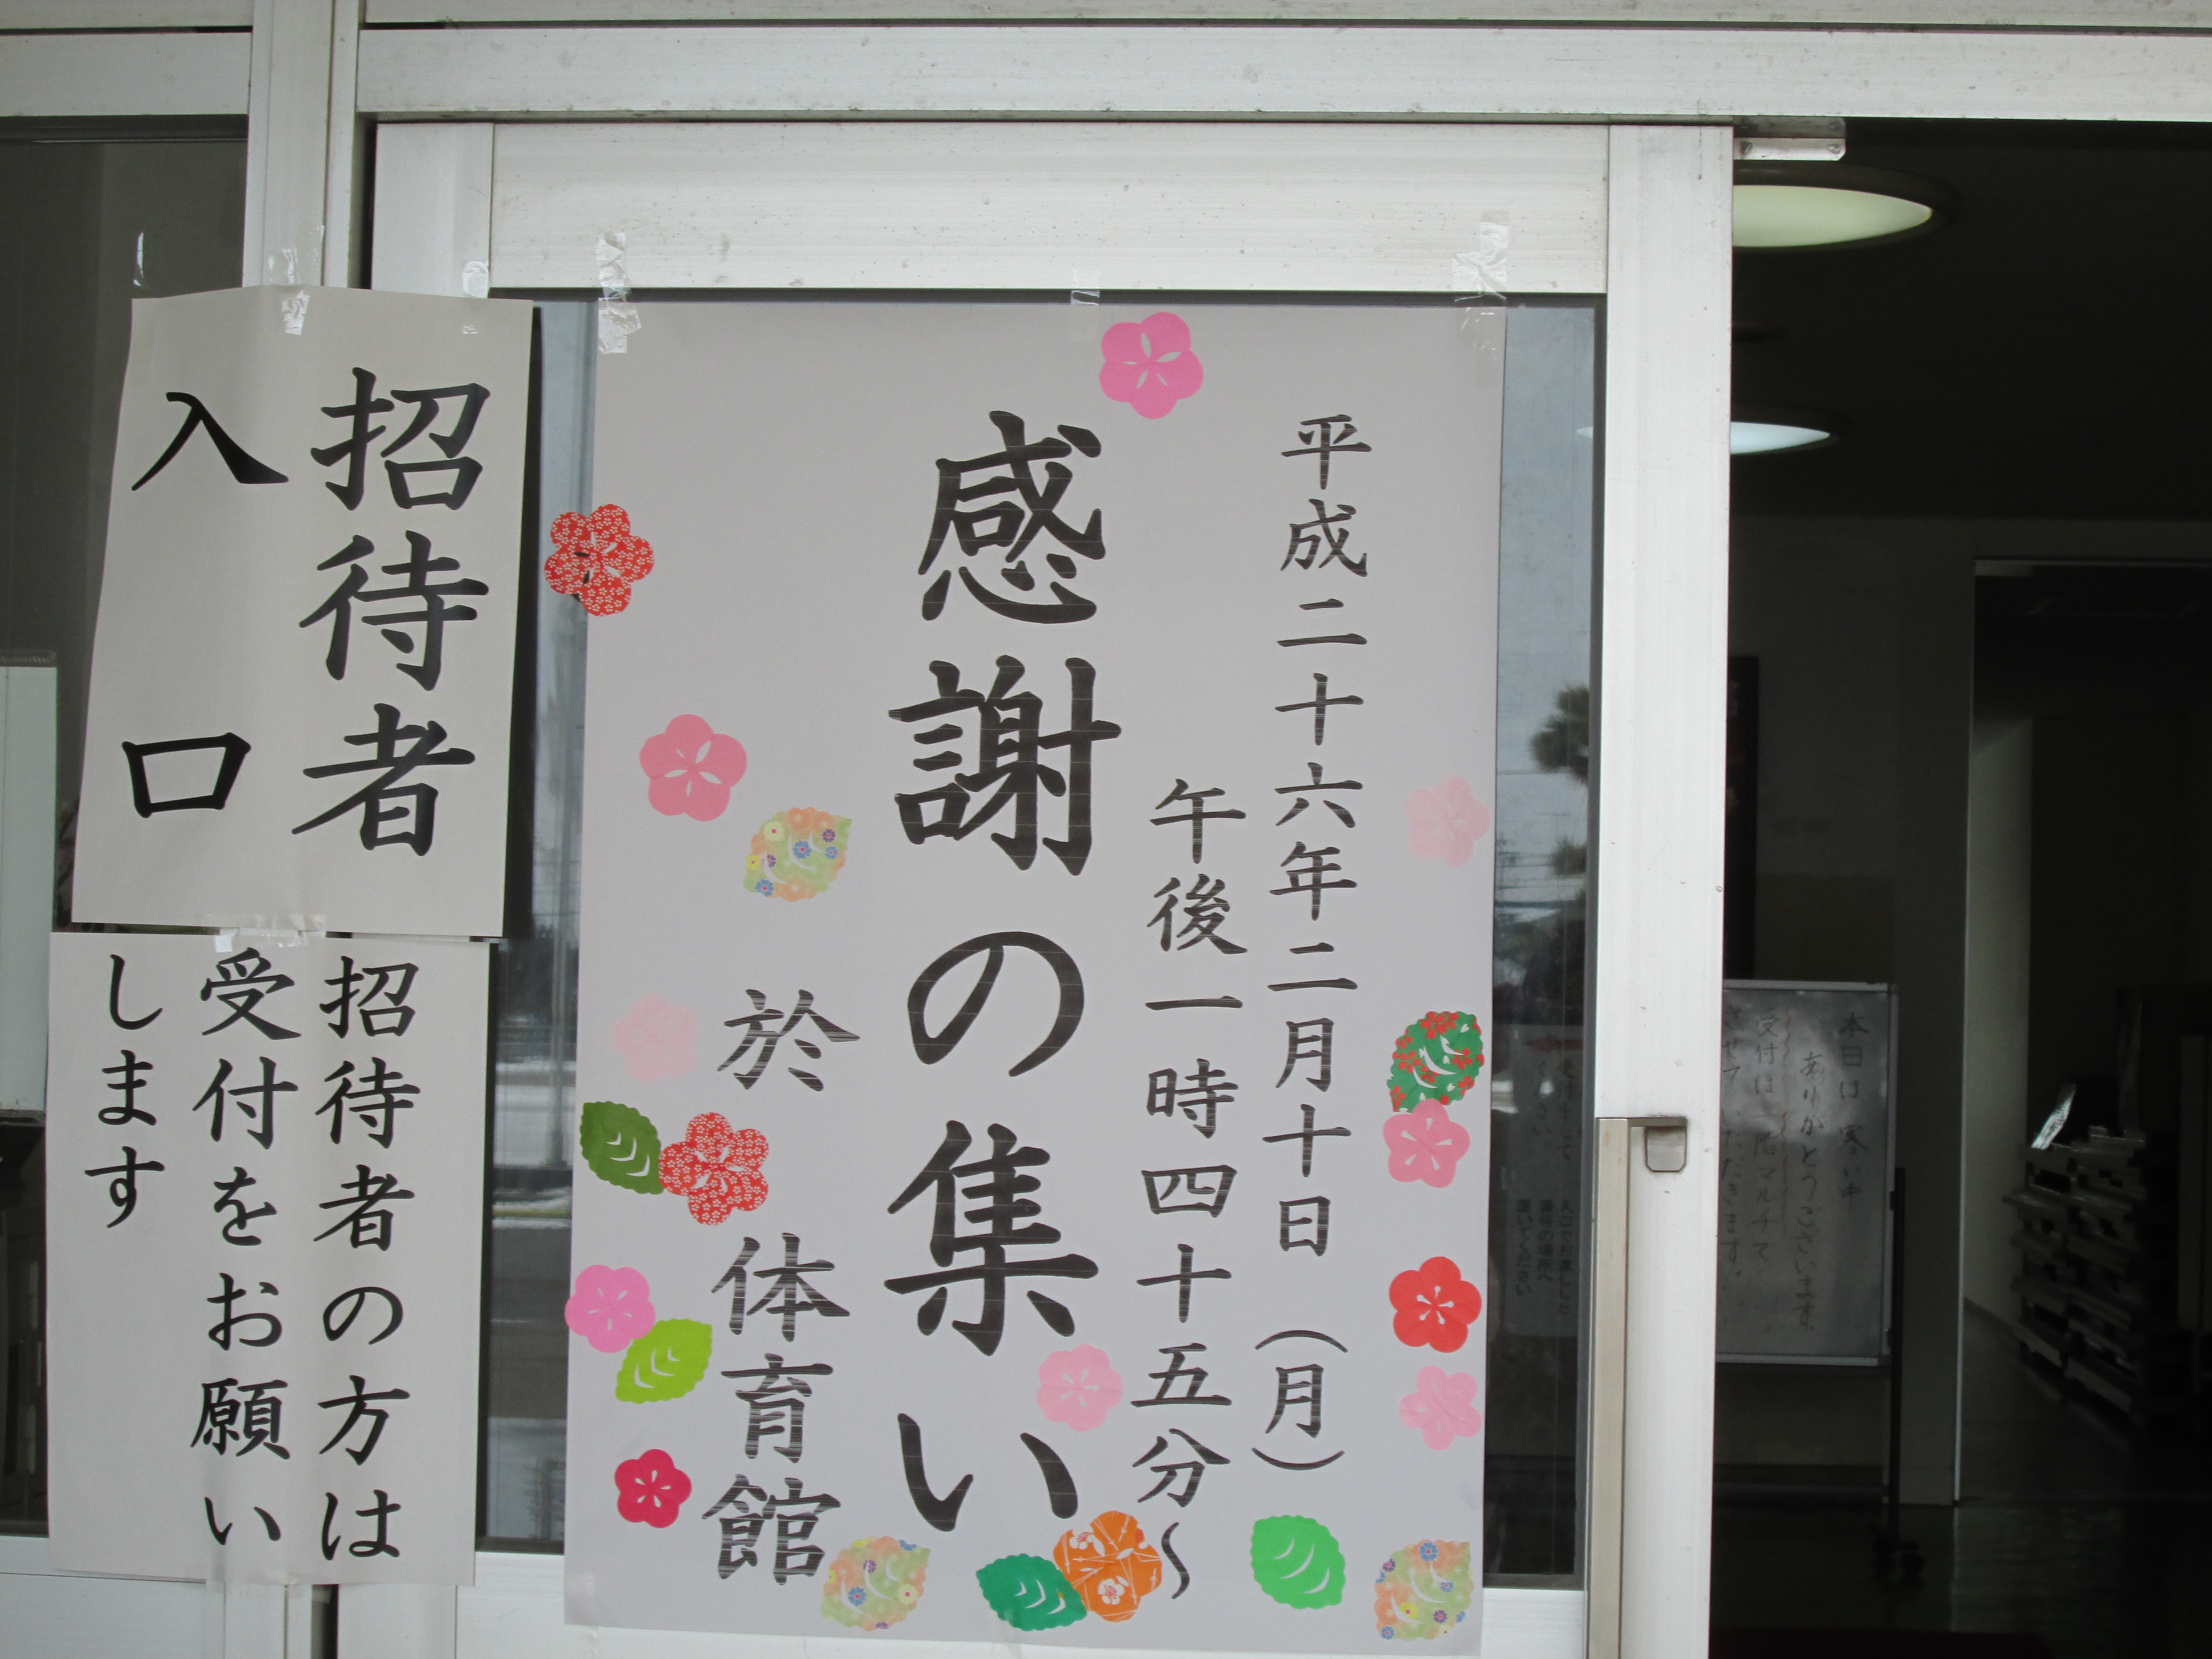 平成二十六年二月十日（月）
午後一時四十五分～
感謝の集い
於　体育館
招待者
入口
招待者の方は
受付をお願い
します
本日は寒い中
ありがとうございます。
受付は一階マルチで
させていただきます。